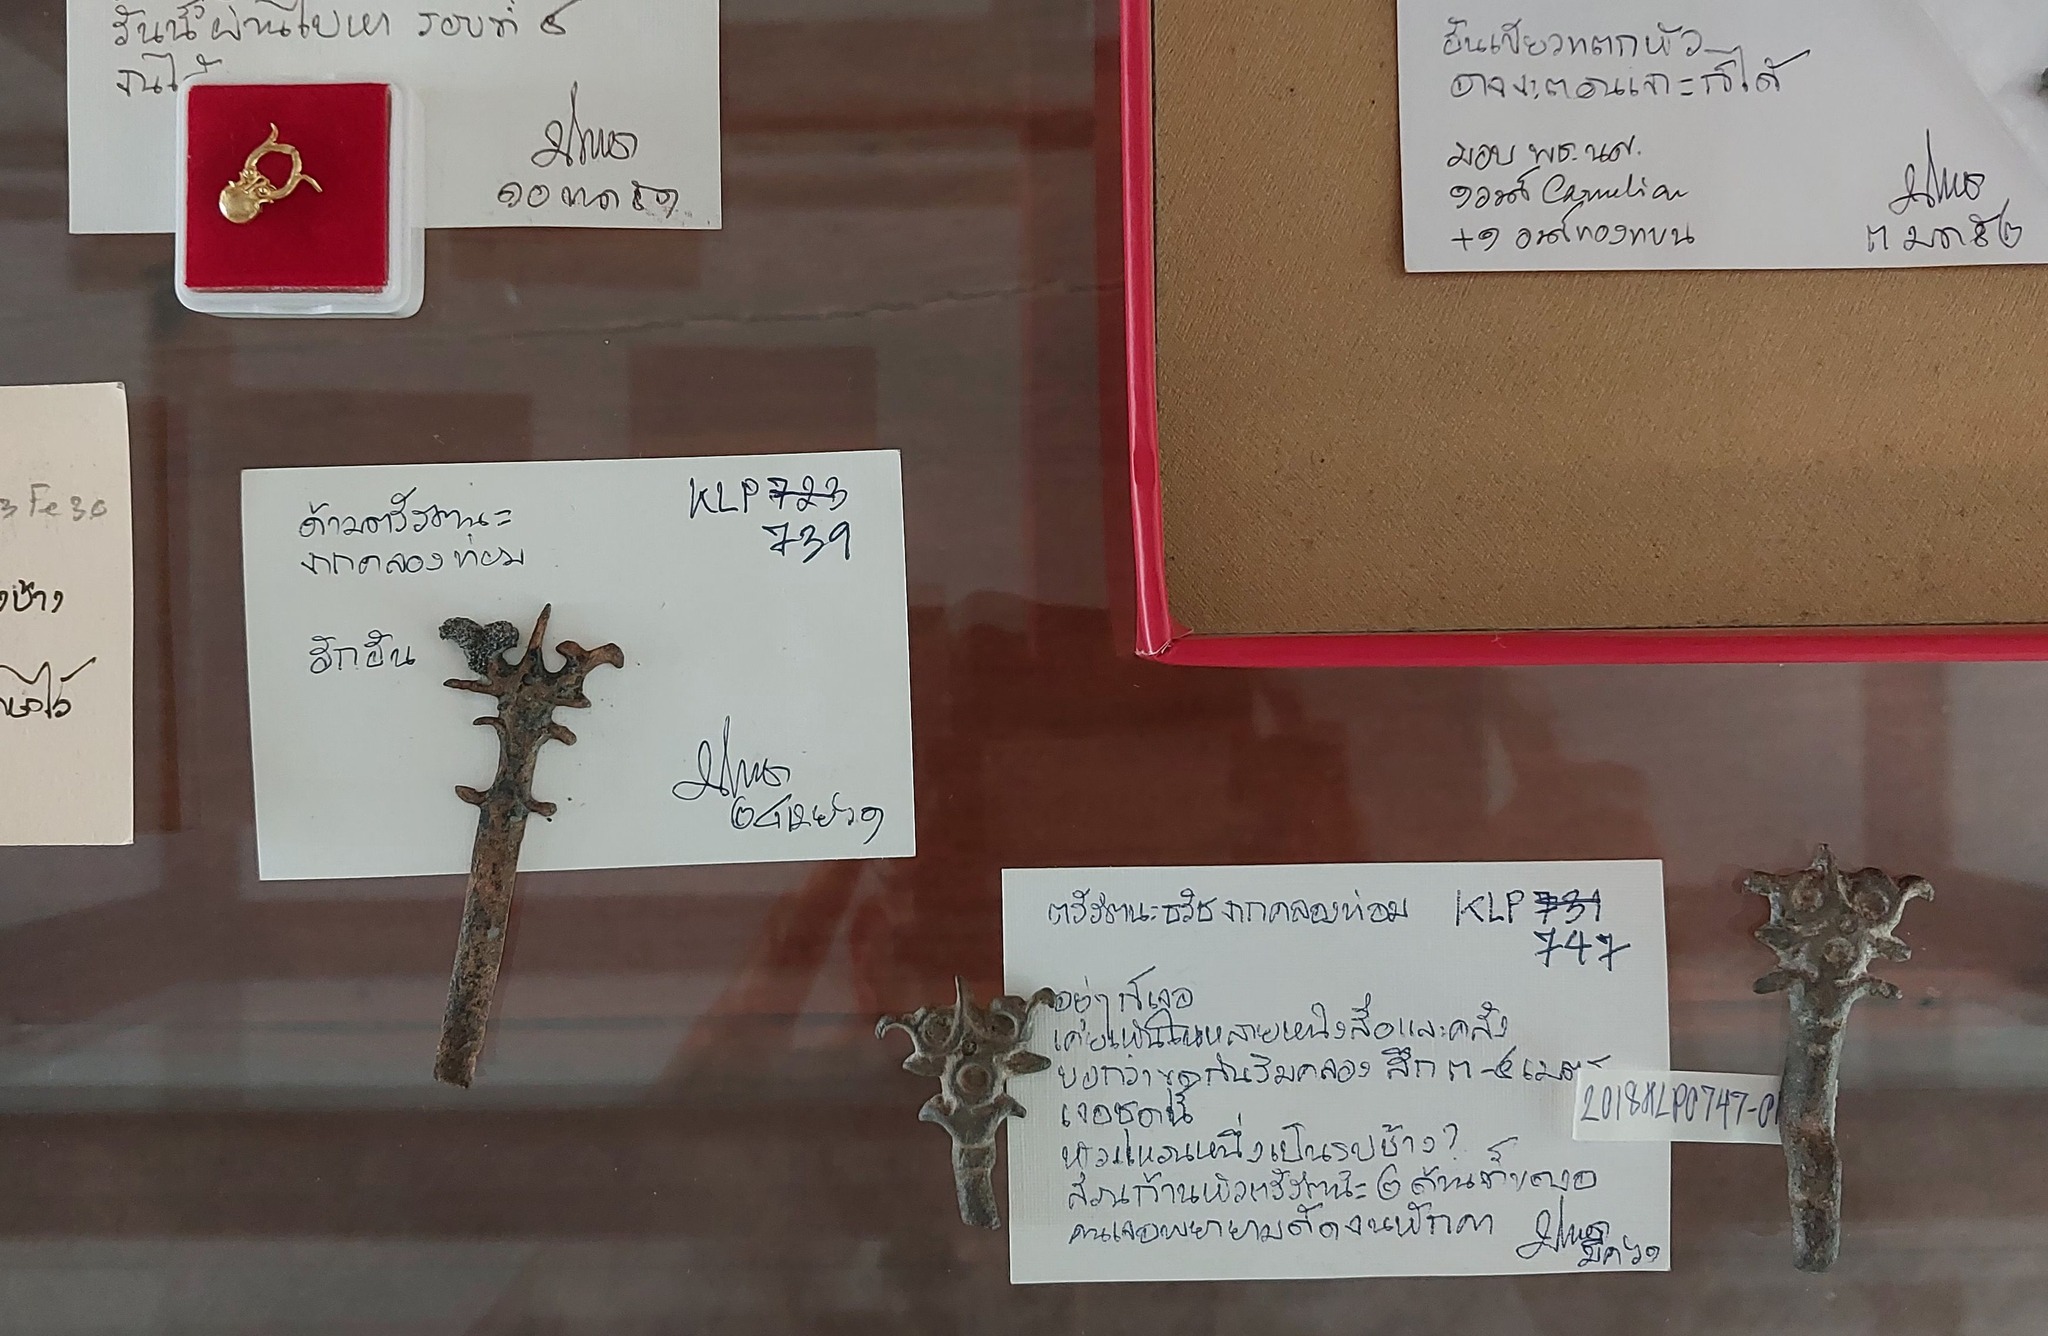 วันนี้ผ่านไปหา รอบที่ ๕
จนได้
๑๐ ๕๑
อันเขียวแตกหัว
อาจจะตอนเจาะก็ได้
มอบ พธ.นศ.
๑องค์ Carnelian
+๑ องค์ทอง
๓ มค ๕๒
Fe30
ช้าง
ไว้
ด้ามตรีรัตนะ
จากคลองท่อม
KLP 723
739
อีกอัน
๒๔ เมย ๖๑
ตรีรัตนะ จากคลองท่อม KLP 731
747
อยู่ๆ ก็เจอ
เคยเห็นในหลายหนังสือและคลัง
บอกว่าขุดกันริมคลอง ลึก ๓-๔ เมตร
เจอชุดนี้
หัวแหวนหนึ่งเป็นรูปช้าง?
ส่วนก้านหัวตรีรัตนะ ๒ ด้านที่งอ
คนเจอพยายามดัดจนหักคา
มีค ๖๑
2018KLP0747-01